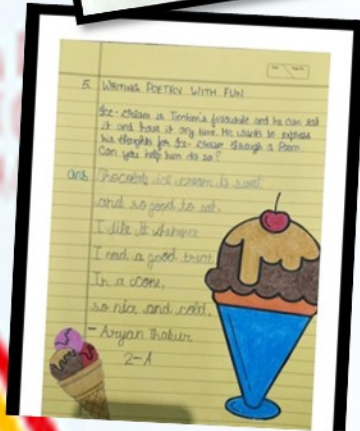 5. WRITING POETRY WITH FUN
Ice-cream is Tinthoni's favourite and he can eat
it and have it any time. He wants to express
his thoughts for Ice-cream through a Poem.
Can you help him do so?
ans. Chocolate ice cream is sweet
and so good to eat.
I like it whenever
I need a good treat.
In a cone,
so nice and cold.
- Aryan Thakur
2-A